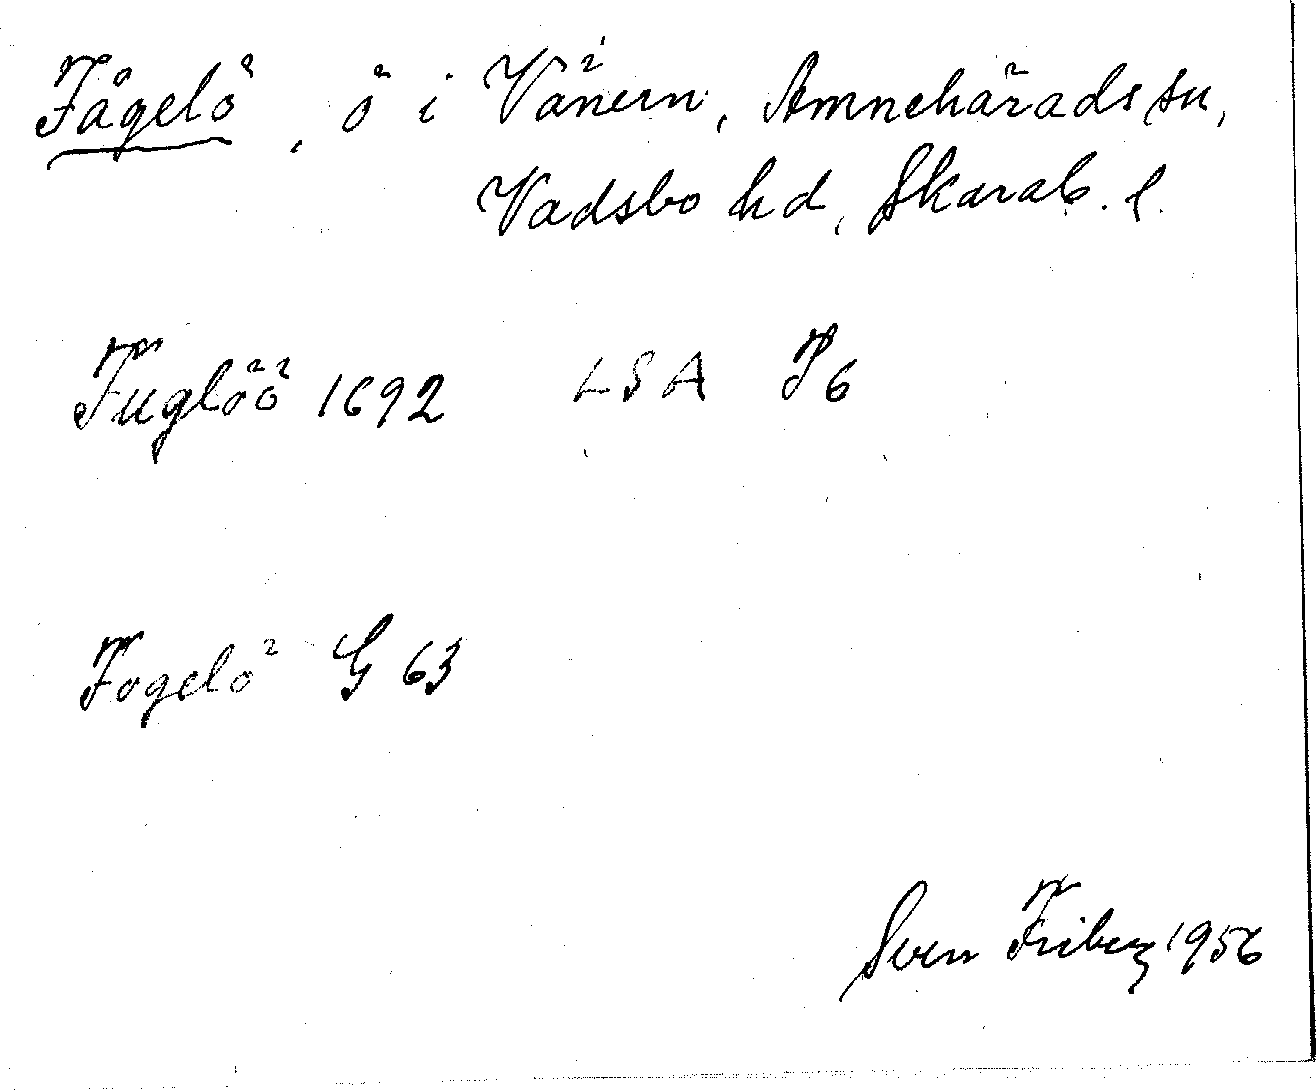 Fågelö, ö i Vänern, Amnehärads sn,
Vadsbo hd, Skarab. l.
Fuglöö 1692 LSA P6
Fogelö G 63
Sven Friberg 1956